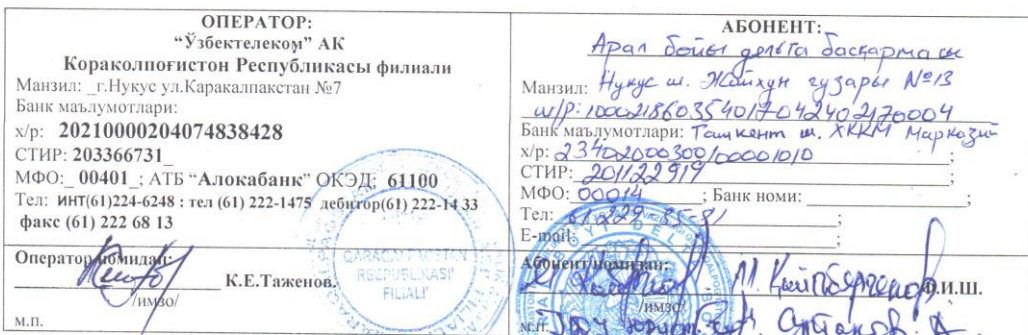 ОПЕРАТОР:
“Ўзбектелеком” АК
Кораколпоғистон Республикасы филиали
Манзил: _г.Нукус ул.Каракалпакстан №7
Банк маълумотлари:
х/р: 20210000204074838428
СТИР: 203366731_
МФО:_ 00401_; АТБ “Алокабанк” ОКЭД: 61100
Тел: ИНТ(61)224-6248 : тел (61) 222-1475 дебитор(61) 222-14 33
факс (61) 222 68 13
Оператор номидан:
К.Е.Таженов.
/имзо/
м.п.
QARAQALPAQSTAN
RESPUBLIKASI'
FILIALI'
АБОНЕНТ:
Арал бойы дельта басқармасы
Манзил: Нукус ш. Жайхун гузары №13
ш/р: 100021860354017042402170004
Банк маълумотлари: Ташкент ш. ХККМ Марказий
х/р: 23402000300100001010 ;
СТИР: 201122919 ;
МФО: 00014 ; Банк номи: ;
Тел: 61 229-35-81 ;
E-mail: ;
Абонент номидан:
Ф.И.Ш.
/имзо/
м.п.